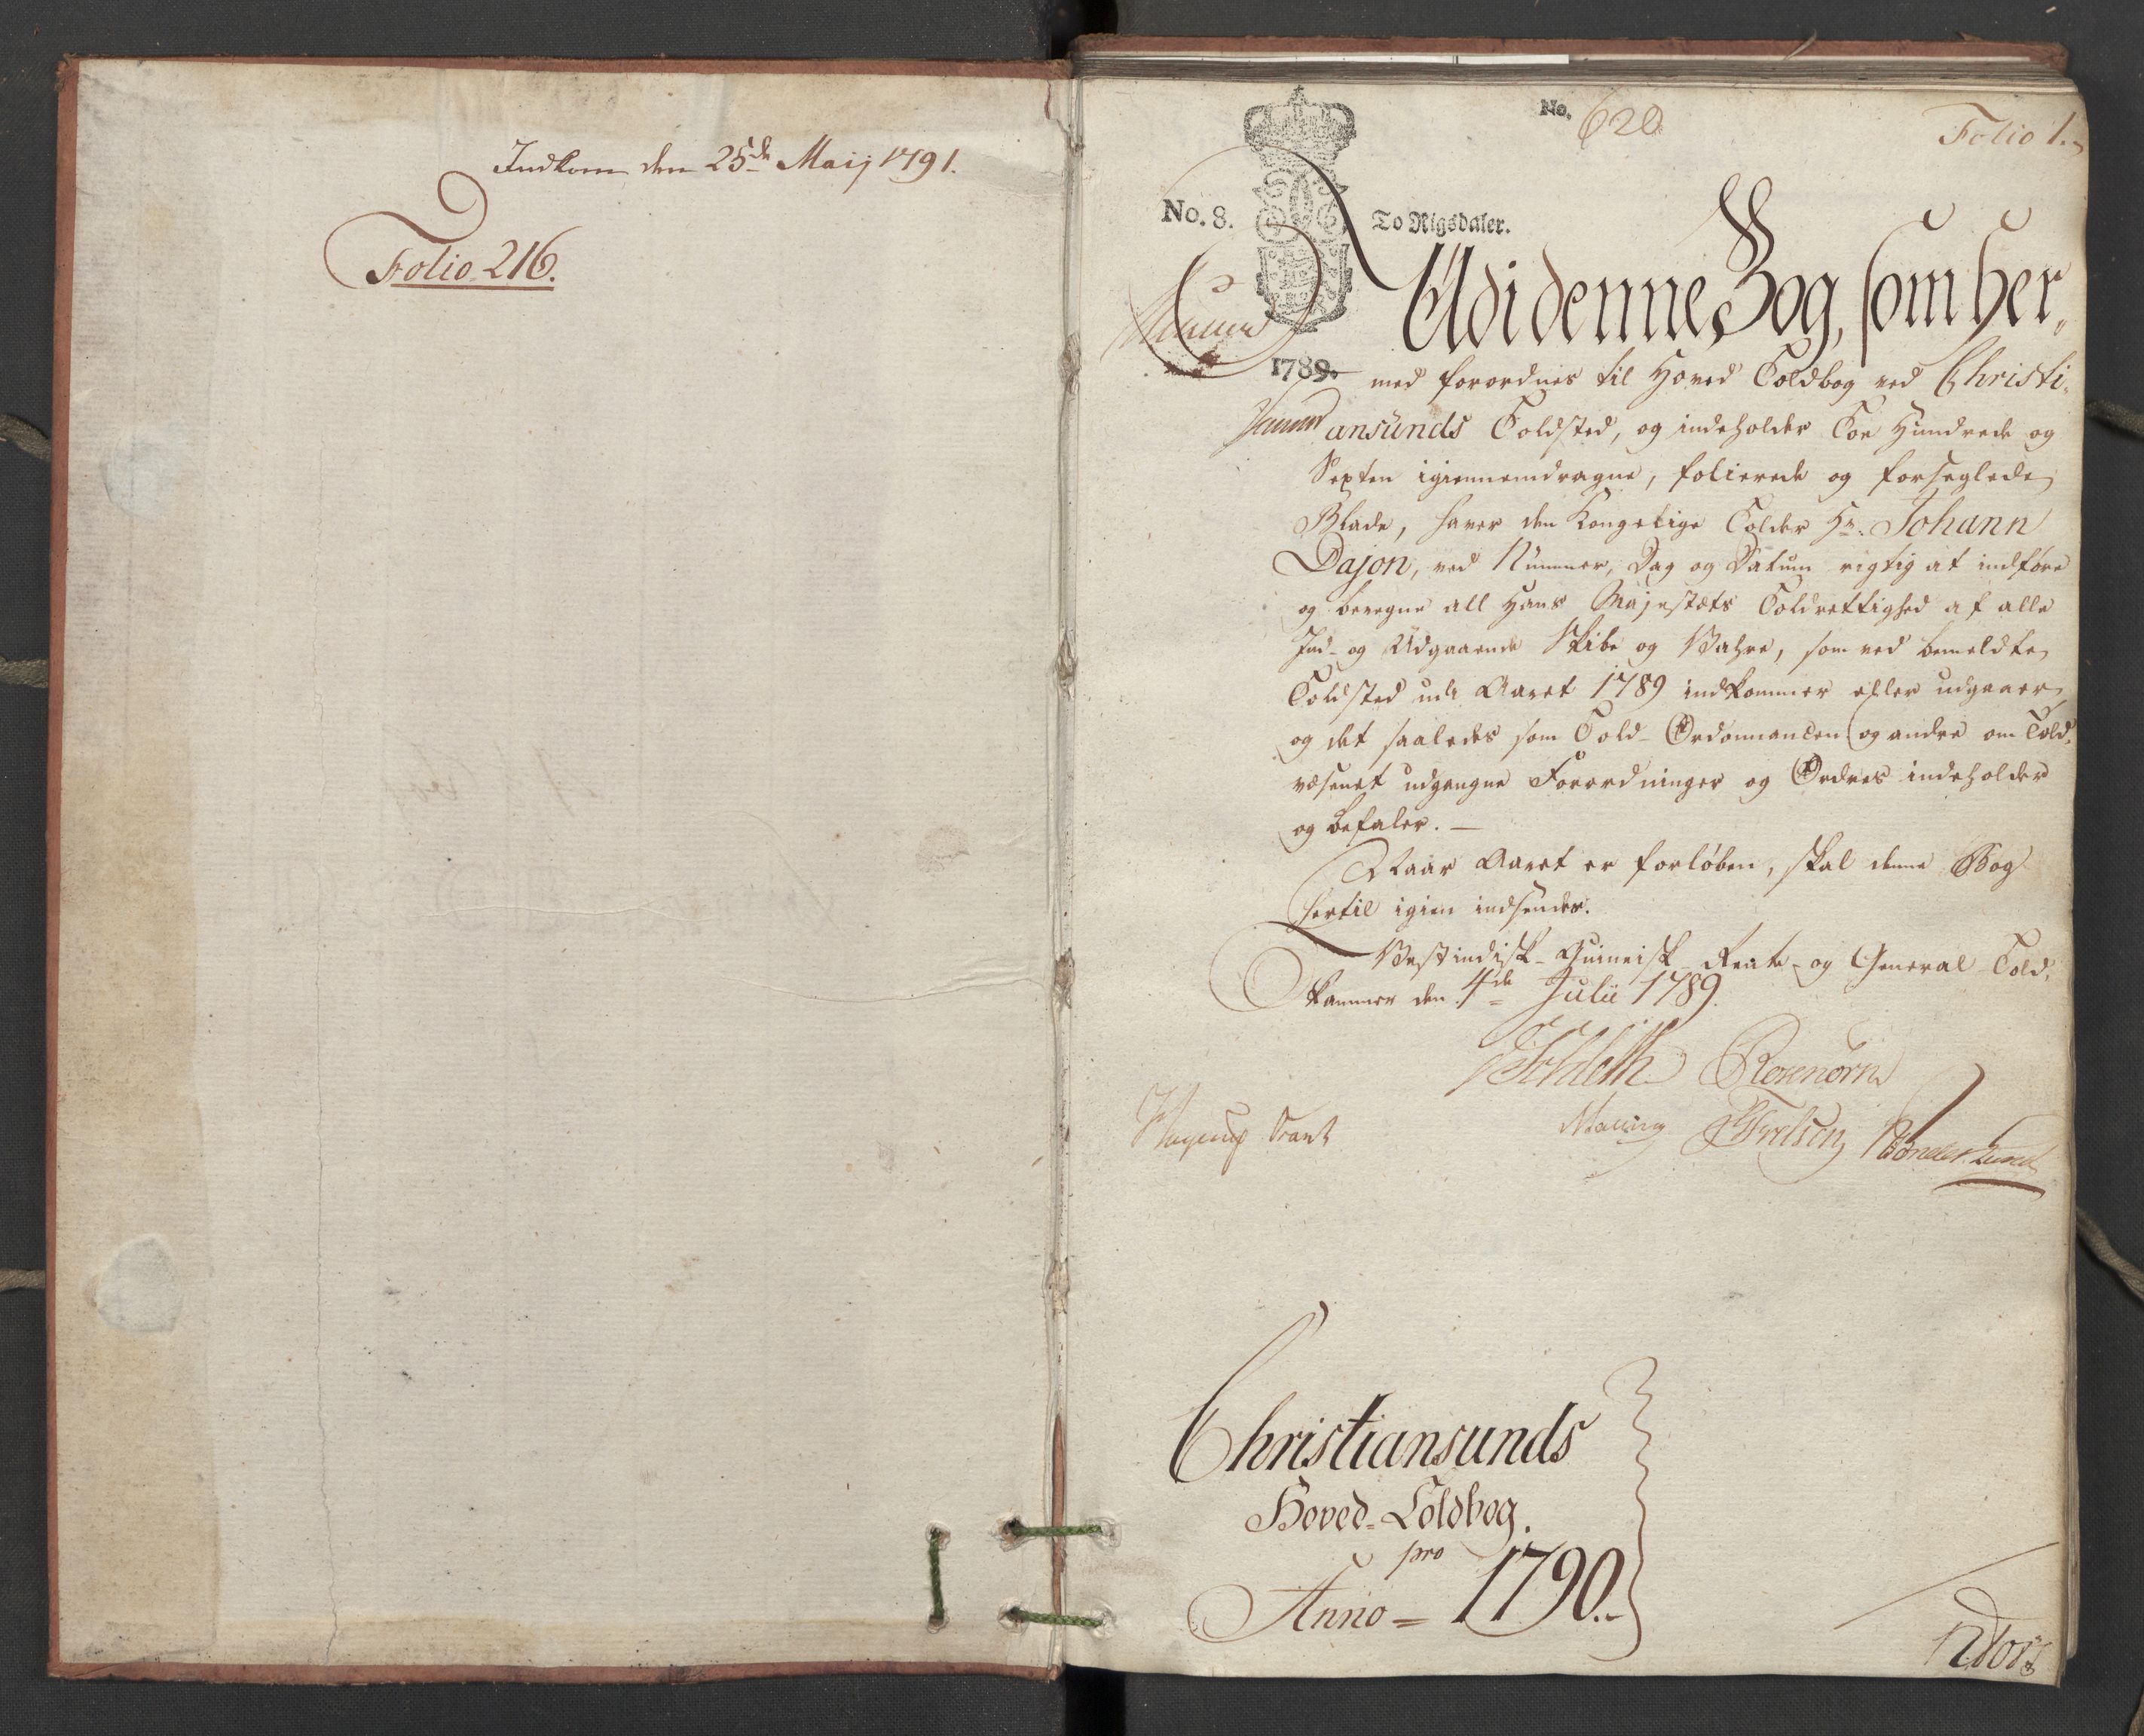 Indkom den 25de Maij 1791.
Folio 216.
No. 620
Folio 1.
No. 8.
To Rigsdaler.
1789.
Udi denne Bog, som her,
med forordnes til Hoved Toldbog ved Christi,
ansunds Toldsted, og indeholder Toe Hundrede og
Sexten igiennemdragne, folierede og forseglede
Blade, haver den Kongelige Tolder Hr. Johann
Dajon, ved Nummer, Dag og Datum rigtig at indføre
og beregne all Hans Majestæts Toldrettighed af alle
Ind- og Udgaaende Skibe og Vahre, som ved bemeldte
Toldsted udi Aaret 1789 indkommer eller udgaaer
og det saaledes som Told-Ordonnancen og andre om Told,
væsenet udgangne Forordninger og Ordres indeholder
og befaler. —
Naar Aaret er forløben, skal denne Bog
hertil igien indsendes.
Vestindisk-Guineisk Rente- og General Told,
kammer den 4de Julii 1789.
Rosenørn
Christiansunds
Hoved-Toldbog.
pro
Anno = 1790.